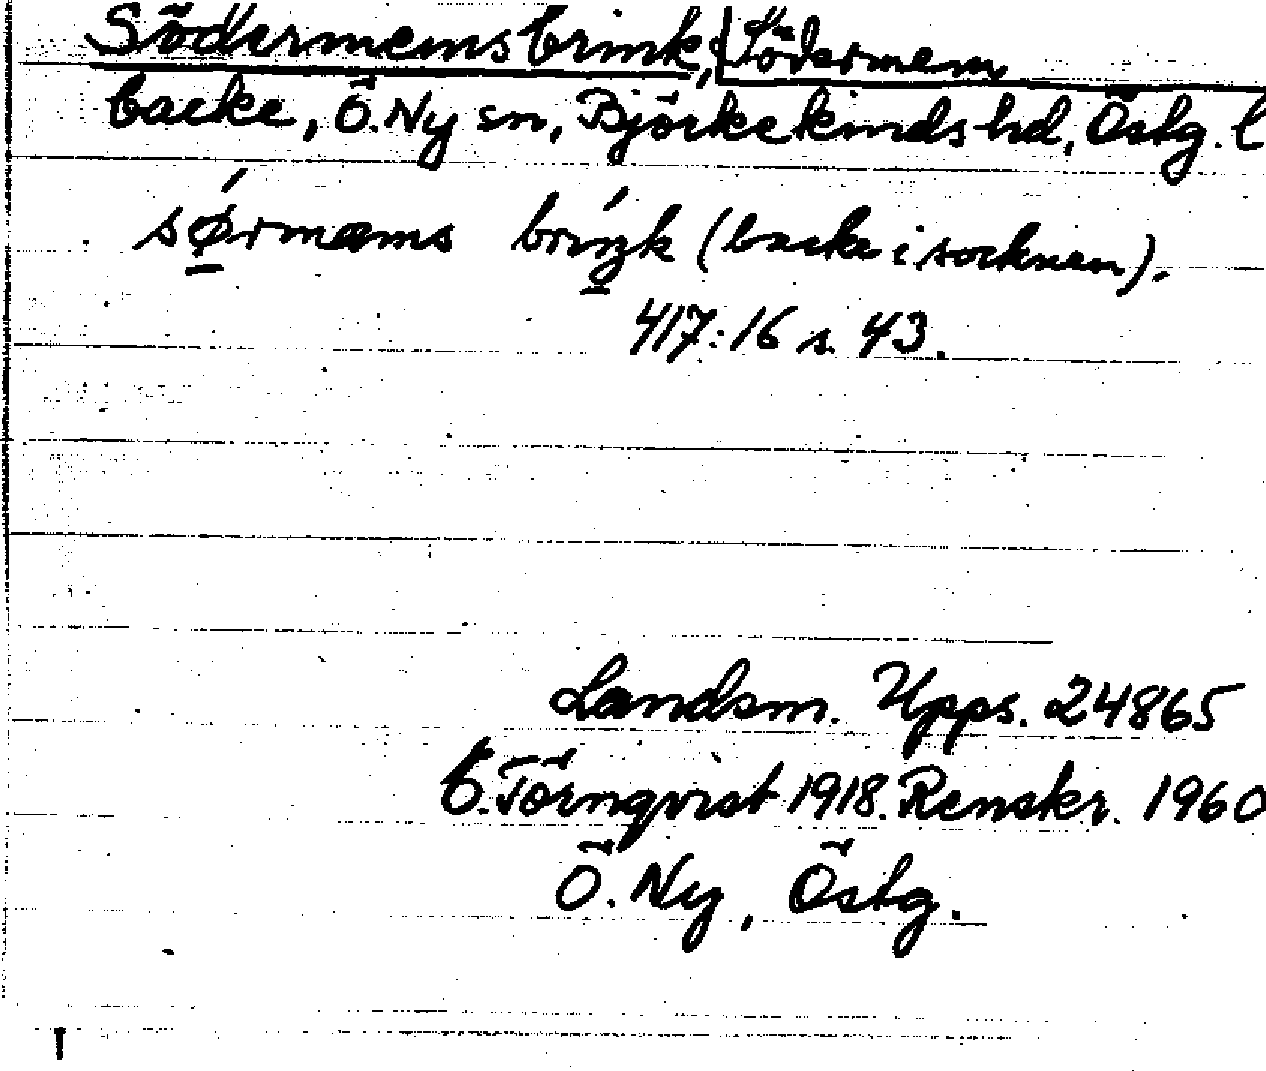 Södermemsbrink, Södermem
backe, Ö. Ny sn, Björkekinds hd, Östg. l
sørmæms briŋk (backe i socknen).
417:16 s. 43.
Landsm. Upps. 24865
E. Törnqvist 1918. Renskr. 1960
Ö. Ny, Östg.